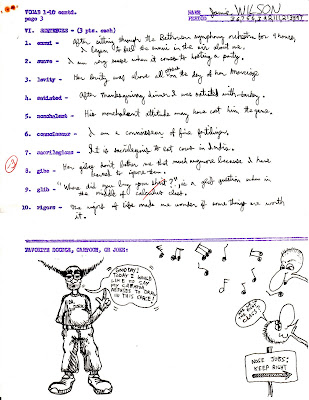 VOCAB 1-10 contd.
page 3
NAME Jamie WILSON
PERIOD 
VI. SENTENCES - (3 pts. each)
1. ennui - After sitting through the Bethoven symphony orchestra for 3 hours,
I began to feel the ennui in the air about me.
2. suave - I am very suave when it comes to hosting a party.
3. levity - Her levity was above all great on the day of her marriage
4. satiated - After Thanksgiving dinner I was satiated with turkey.
5. nonchalant - His nonchalant attitude may have cost him the game.
6. connoisseur - I am a connoisseur of fine fettulines.
7. sacrilegious - It is sacrilegious to eat cows in India.
8. gibe - Her gibes don't bother me that much anymore because I have
learned to ignore them.
9. glib - "Where did you buy your shirt?", is a glib question when in
the middle of calculus class.
10. rigors - The rigors of life made me wonder if some things are worth
it.
FAVORITE DOODLE, CARTOON, OR JOKE:
TODAY I WOULD
LIKE TO SAY
MY CARTOONIST
REFUSES TO DRAW
IN THIS SPACE!
NOSE JOBS:
KEEP RIGHT